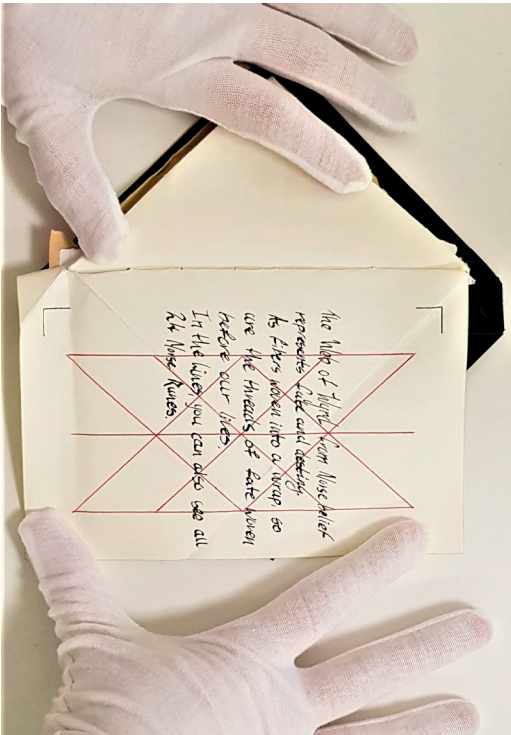 The Web of Wyrd from Noise belief
represents fate and destiny.
As fibers woven into a wrap, so
are the threads of fate woven
before our lives.
In the lines, you can also see all
24 Noise Runes.